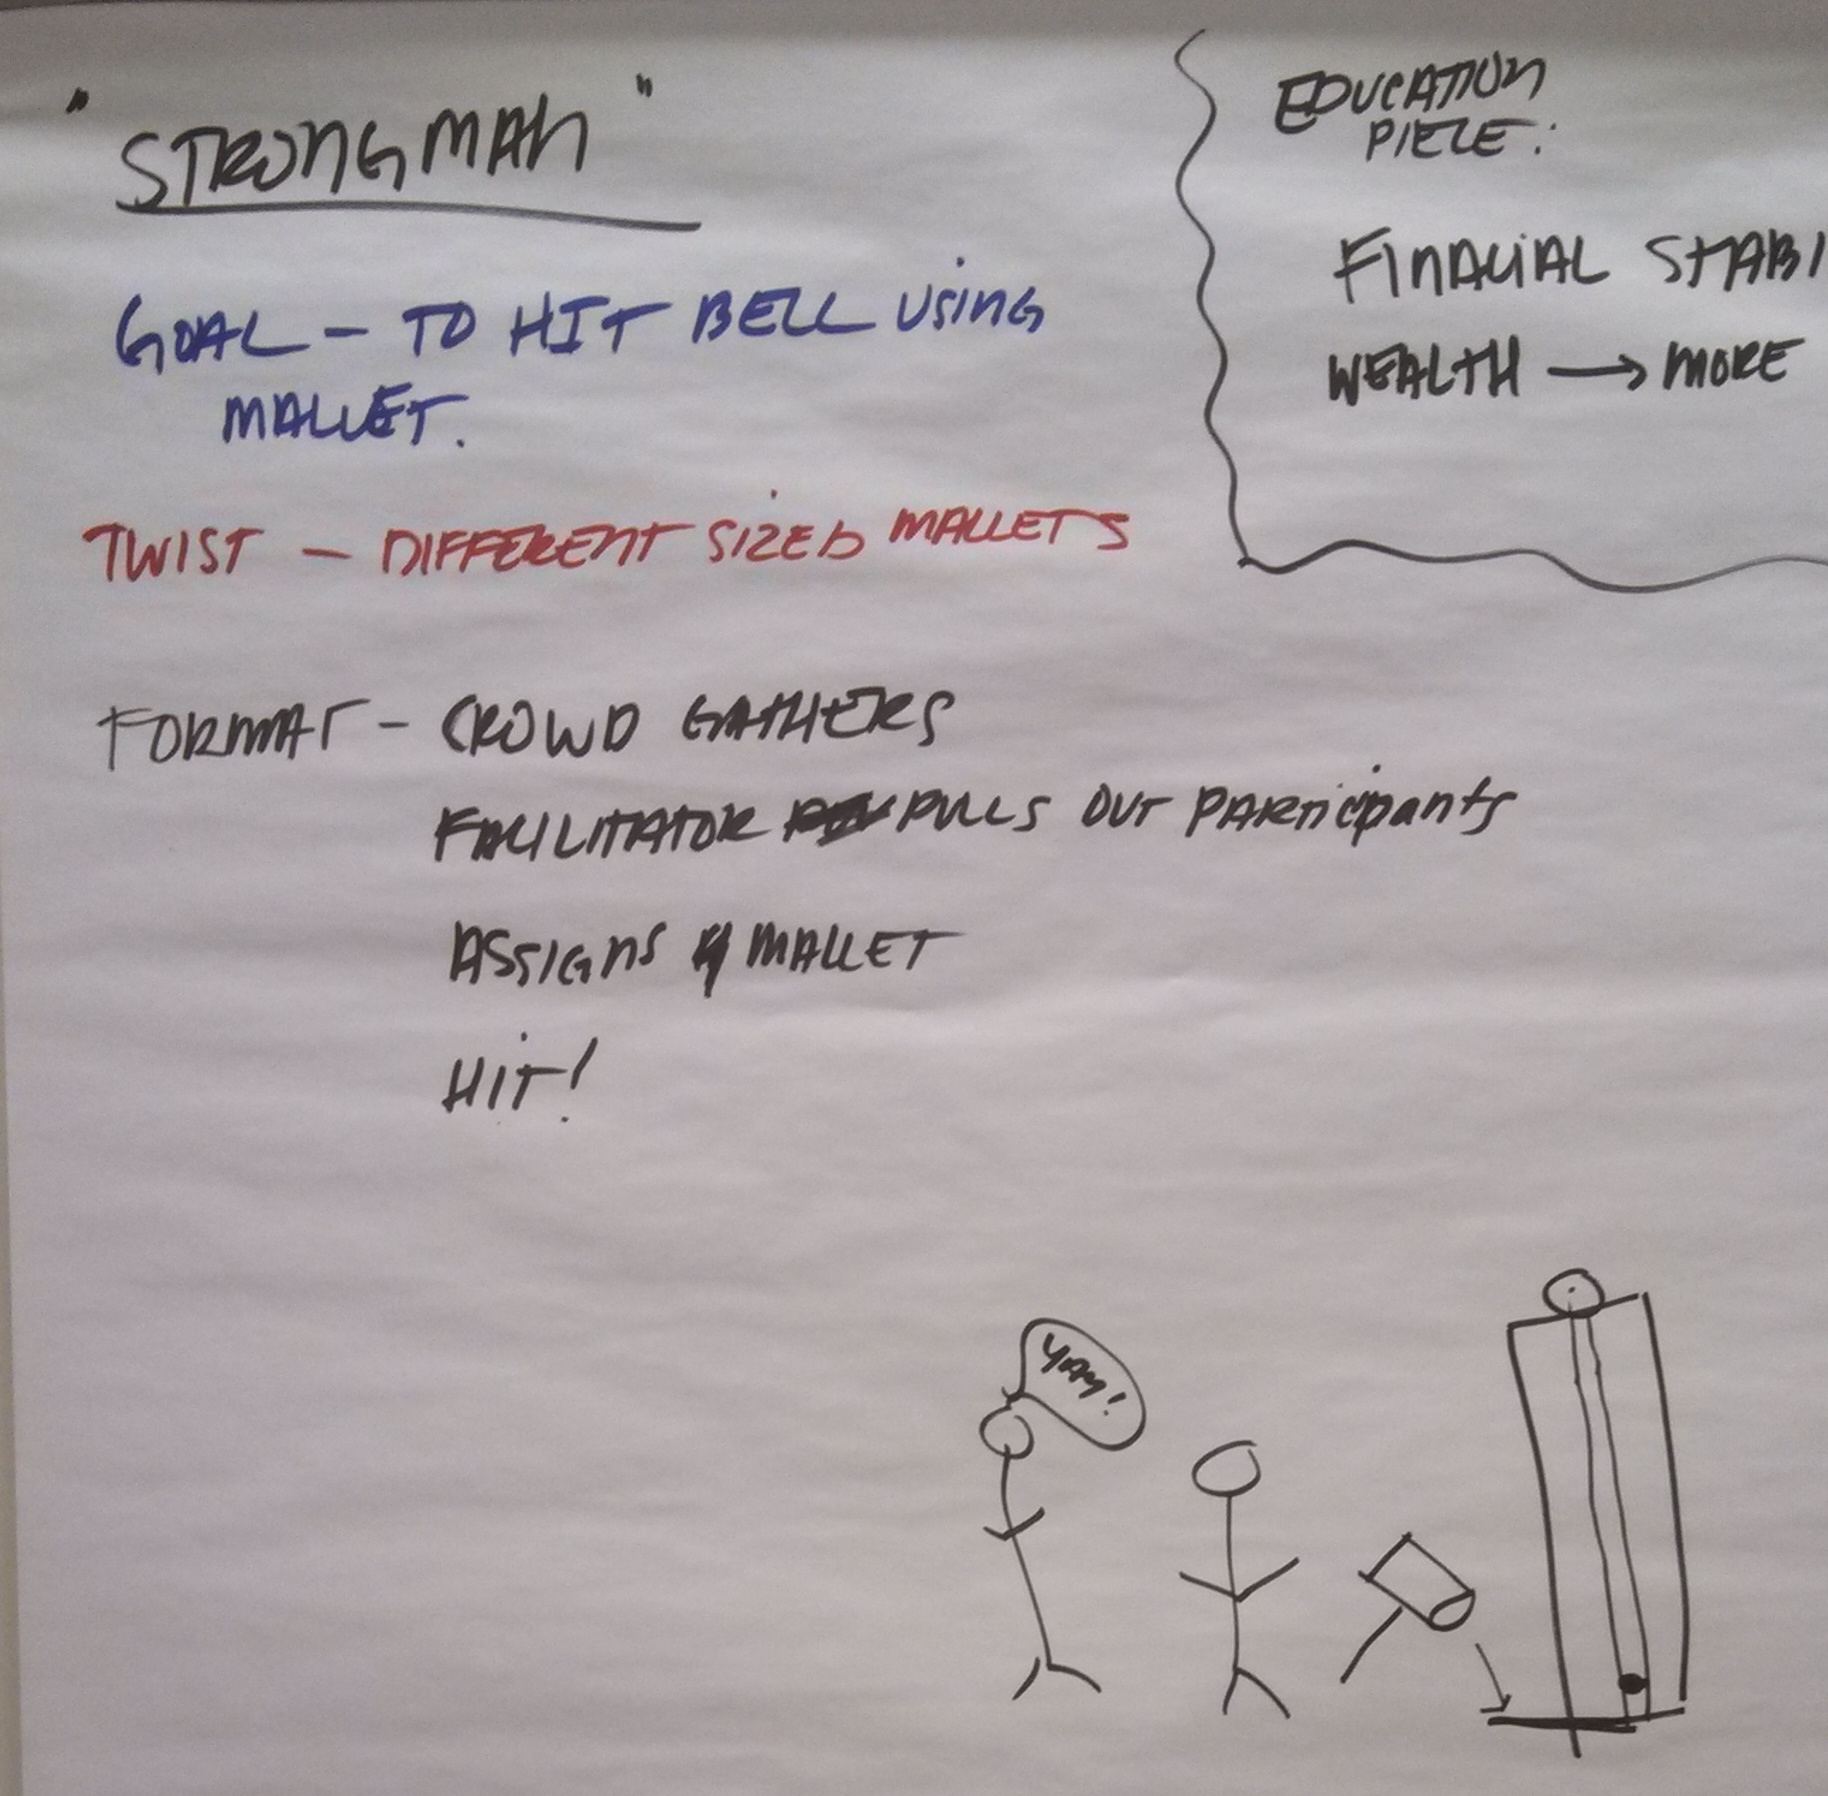 "STRONGMAN"
GOAL - TO HIT BELL USING
MALLET.
TWIST - DIFFERENT SIZED MALLETS
FORMAT - CROWD GATHERS
FACILITATOR PULLS OUT PARTICIPANTS
ASSIGNS MALLET
HIT!
EDUCATION
PIECE:
FINACIAL STABI
WEALTH → MORE
YAY!